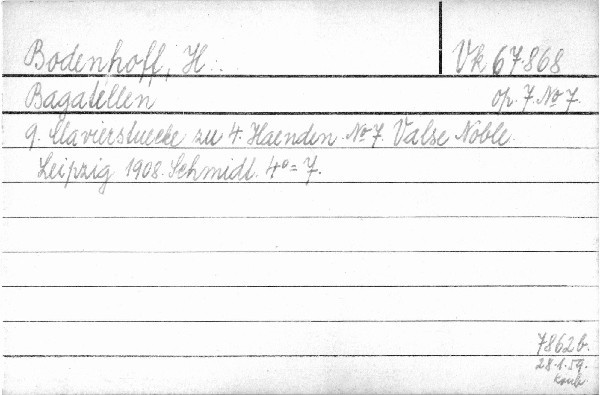 Bodenhoff, H.. Vk 67868
Bagatellen op. 7. No 7.
9. Clavierstuecke zu 4. Haenden. No 7. Valse Noble.
Leipzig 1908. Schmidt. 4° = 7.
7862b.
28.1.59.